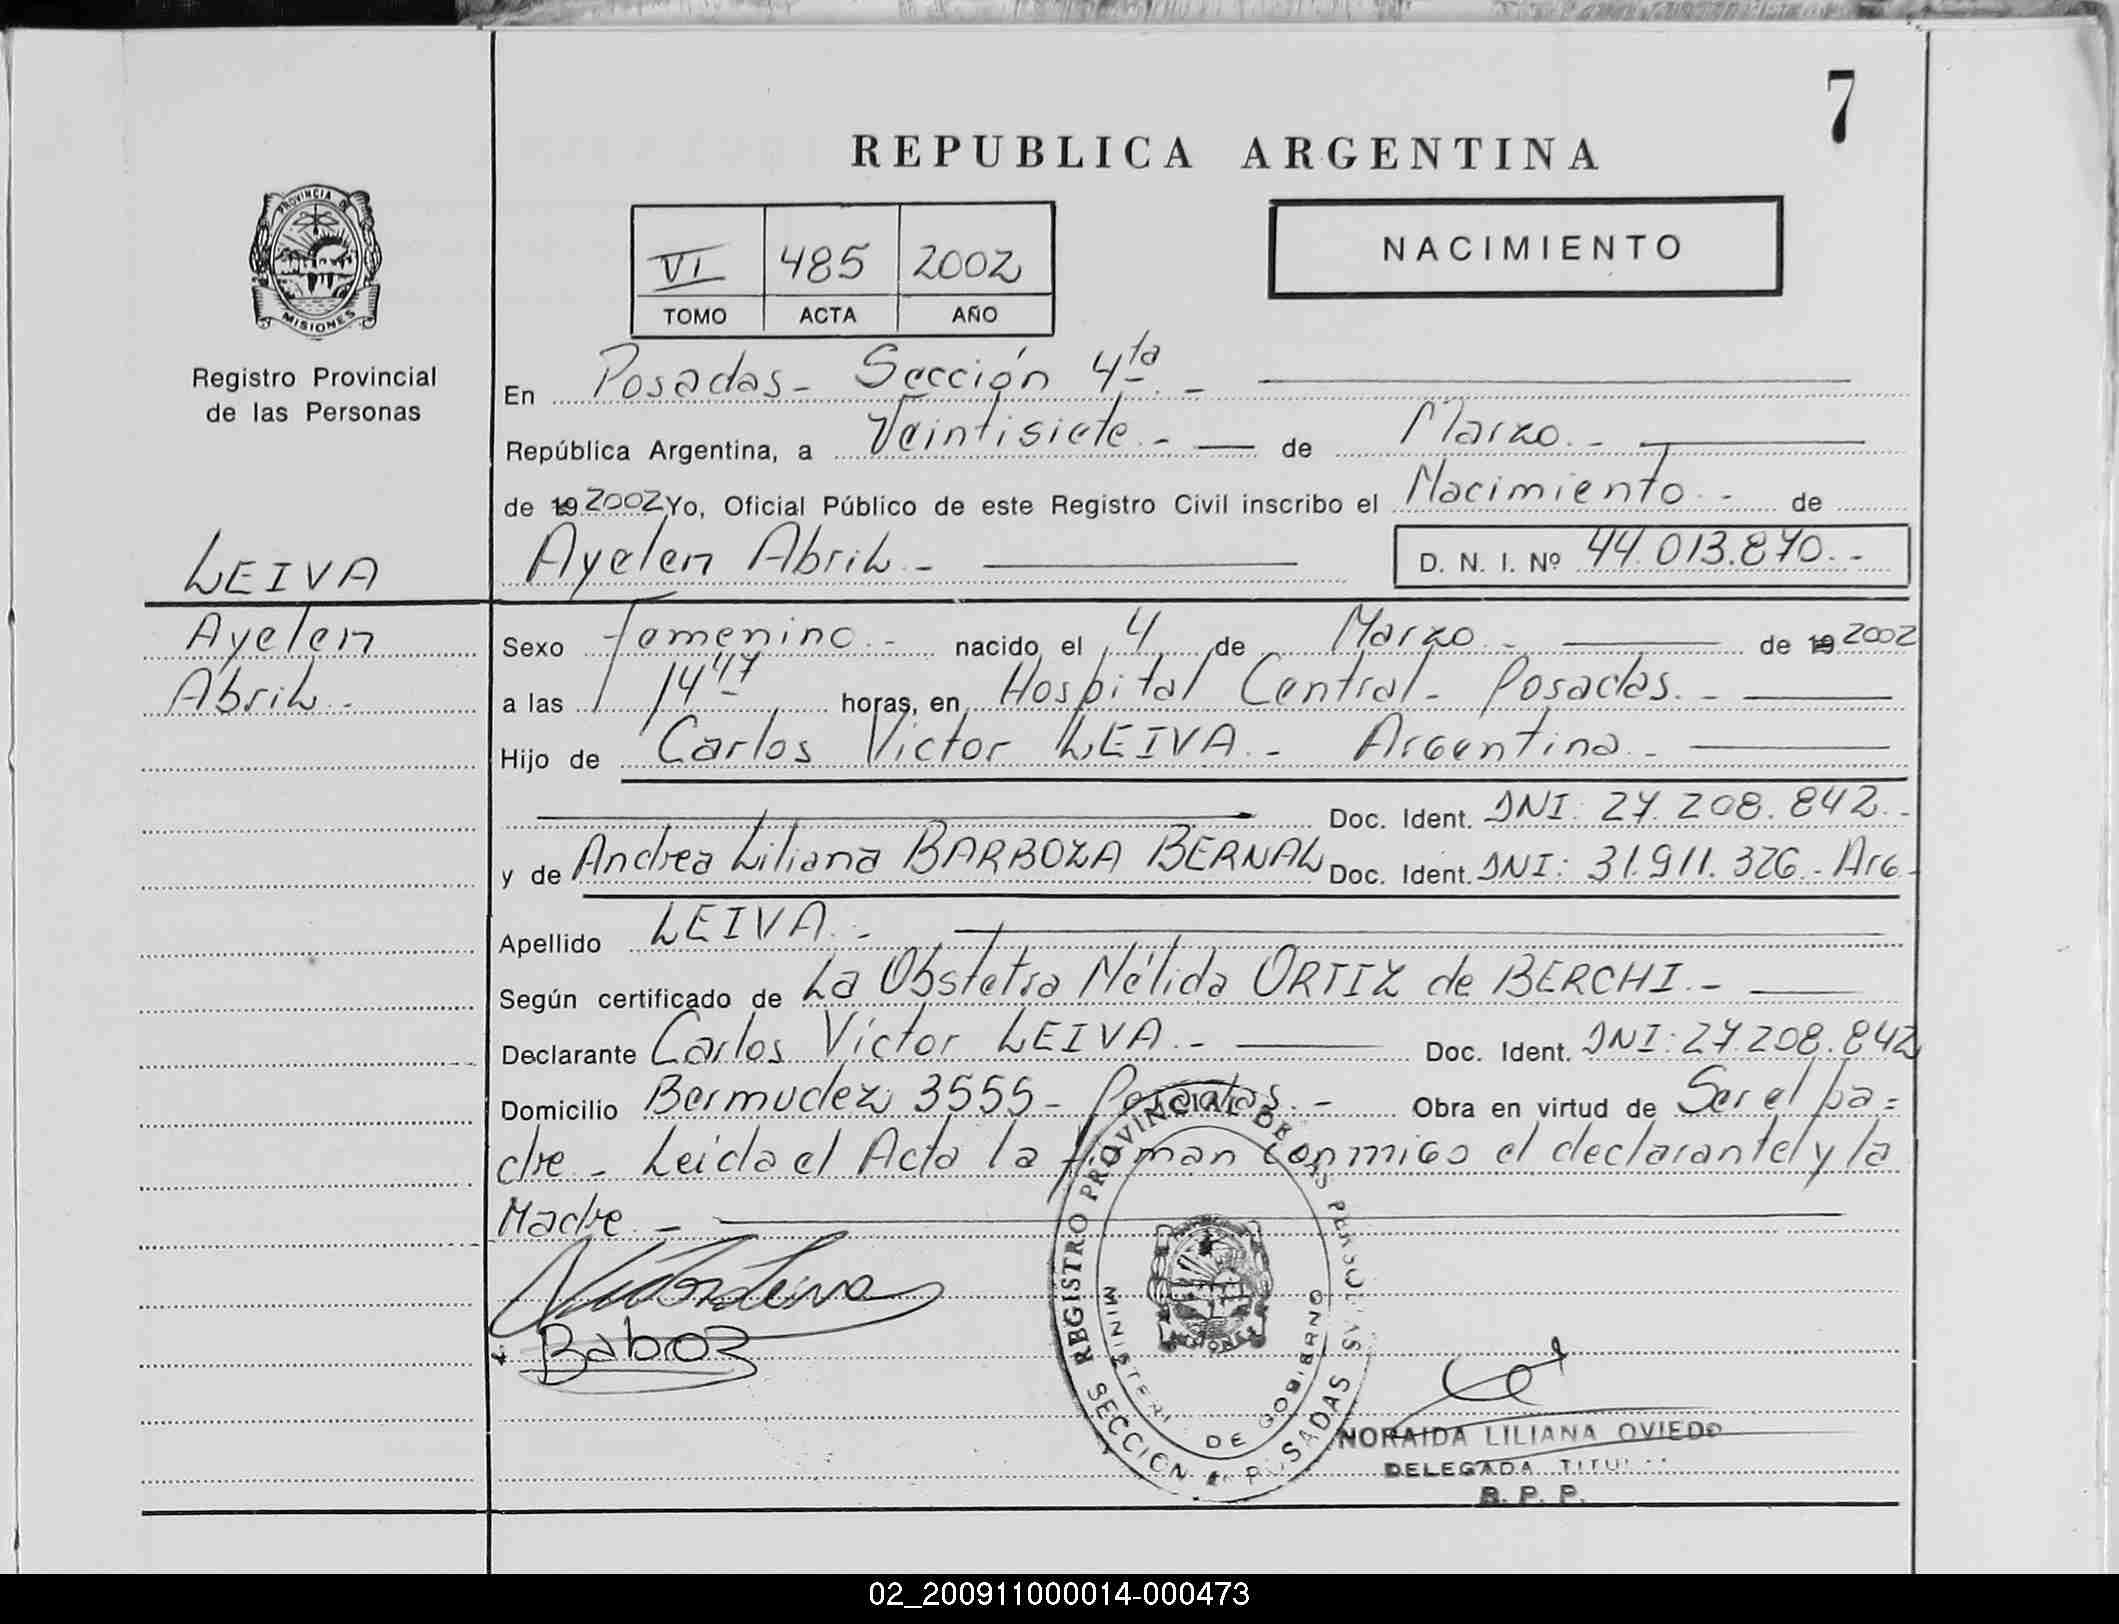 7
REPUBLICA ARGENTINA
PROVINCIA DE
MISIONES
Registro Provincial
de las Personas
VI 485 2002
TOMO ACTA AÑO
NACIMIENTO
En Posadas - Sección 4ta. -
República Argentina, a Veintisiete. - de Marzo. -
de 19 2002 Yo, Oficial Público de este Registro Civil inscribo el Nacimiento. - de
LEIVA
Ayelen Abril. - D. N. I. Nº 44.013.870. -
Ayelen
Abril. -
Sexo femenino. - nacido el 4 de Marzo. - de 19 2002
a las 14 47 horas, en Hospital Central - Posadas. -
Hijo de Carlos Victor LEIVA. - Argentino. -
Doc. Ident. DNI: 27.208.842. -
y de Andrea Liliana BARBOZA BERNAL Doc. Ident. DNI: 31.911.326 - Arg -
Apellido LEIVA. -
Según certificado de La Obstetra Nélida ORTIZ de BERCHI. -
Declarante Carlos Victor LEIVA. - Doc. Ident. DNI: 27.208.842
Domicilio Bermudez 3555 - Posadas. - Obra en virtud de Ser el pa=
dre - Leida el Acta la firman conmigo el declarante y la
Madre. -
REGISTRO PROVINCIAL DE LAS PERSONAS
MINISTERIO DE GOBIERNO
SECCION POSADAS
NORAIDA LILIANA OVIEDO
DELEGADA
R. P. P.
02_200911000014-000473